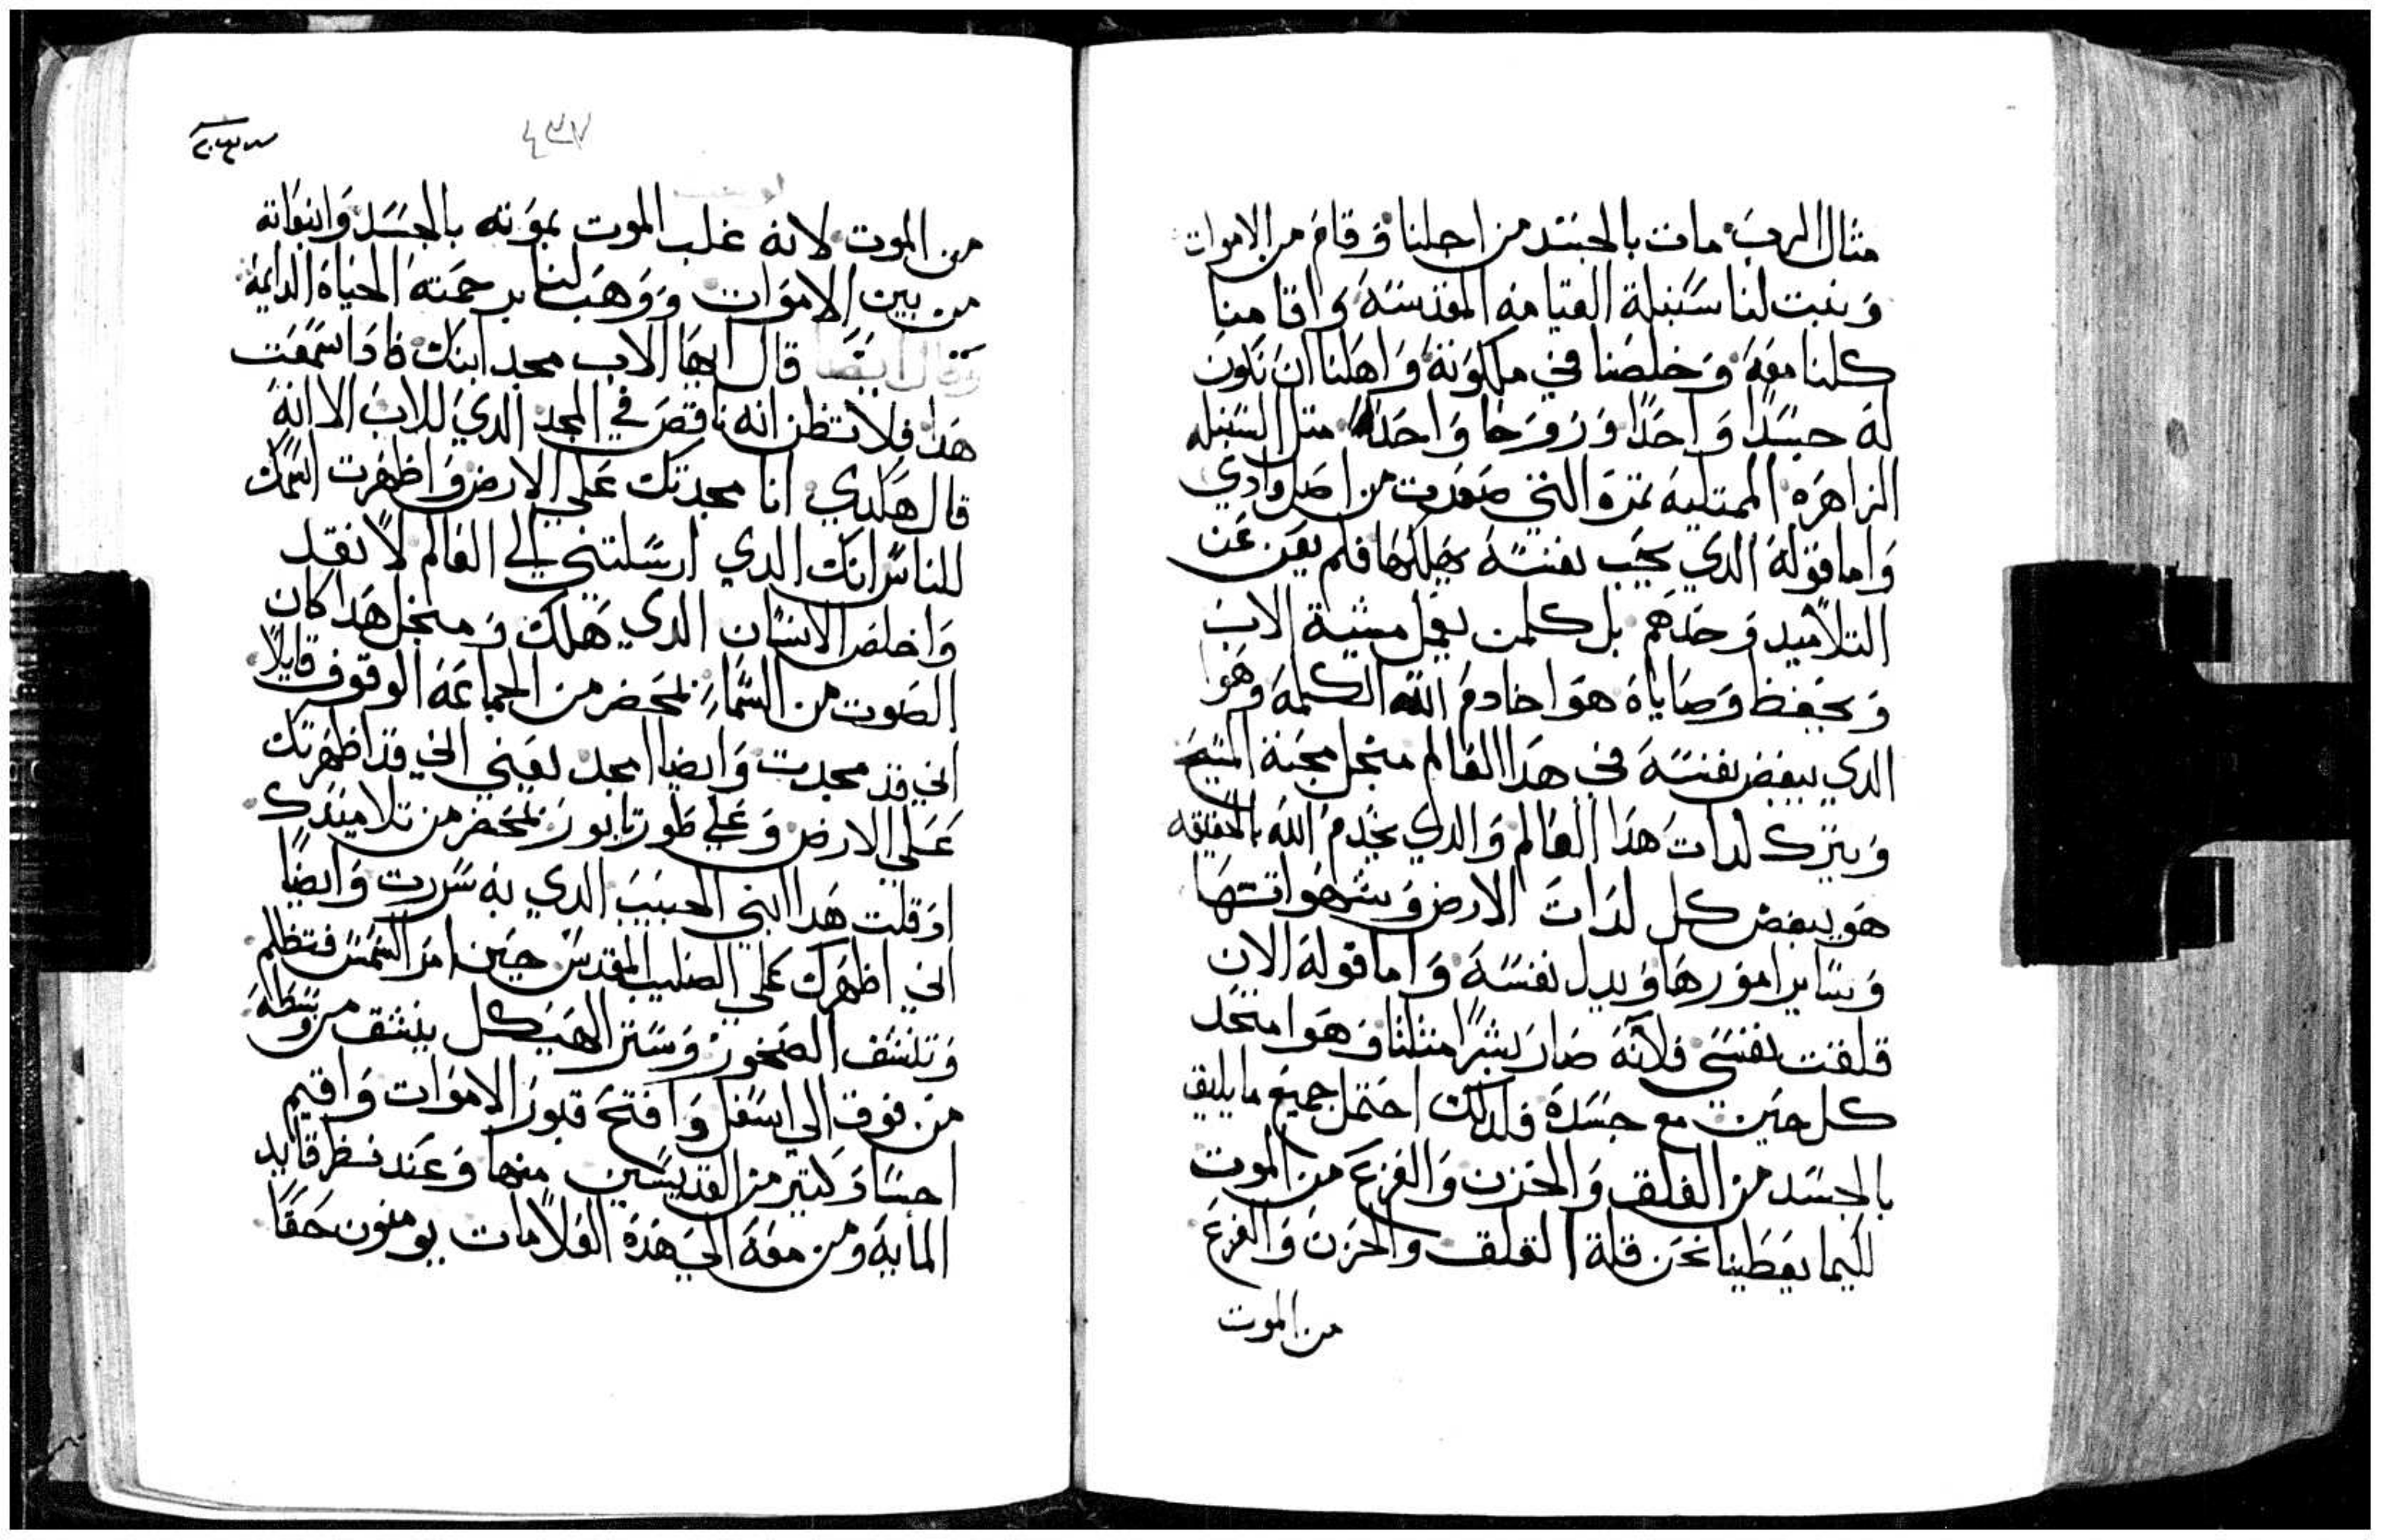 مثال الرب مات بالجسد من اجلنا وقام من الاموات
وينبت لنا سنبلة القيامه المقدسة واقامنا
كلنا معه وخلصنا في ملكوته واهلنا ان نكون
له جسدًا واحدًا وروحا واحدا مثل السنبله
الزاهره الممتليه ثمرة التي صعدت من اصل وادي
واما قوله الدي يحب نفسه يهلكها فلم يعن عن
التلاميد وحدهم بل كلمن يعمل مشية الاب
ويحفظ وصاياه هوا خادم الله الكلمة وهوا
الدي يبغض نفسه في هدا العالم منجل محبة المسيح
ويترك لدات هدا العالم والدي يخدم الله بالحقيقه
هو يبغض كل لدات الارض وشهواتها
وساير امورها ويبدل نفسه واما قوله الان
قلقت نفسي فلانه صار بشرًا مثلنا وهوا متحد
كل حين مع جسده فلدلك احتمل جميع ما يليق
بالجسد من القلق والحزن والفزع من الموت
لكيما يعطينا نحن قلة القلق والحزن والفزع
من الموت
٤٣٧
من الموت لانه غلب الموت بموته بالجسد وانبعاثه
من بين الاموات ووهب لنا برحمته الحياة الدايمة
وقال ايضًا قال ايها الاب مجد ابنك فادا سمعت
هدا فلا تظن انه ناقص في المجد الدي للاب الا انه
قال هكدي انا مجدتك علي الارض واظهرت اسمك
للناس انك الدي ارسلتني الي العالم لانقد
واخلص الانسان الدي هلك ومنجل هدا كان
الصوت من السماء بمحضر من الجماعة الوقوف قايلًا
اني قد مجدت وايضا امجد يعني اني قد اظهرتك
علي الارض وعلي طور تابور بمحضر من تلاميدك
اد قلت هدا ابني الحبيب الدي به سررت وايضًا
اني اظهرك علي الصليب المقدس حين امر الشمس فتظلم
وتتشقق الصخور وستر الهيكل ينشق من وسطه
من فوق الي اسفل وافتح قبور الاموات واقيم
اجساد كتير من القديسين منها وعند نظر قايد
الماية ومن معه الي هده العلامات يومنون حقًا